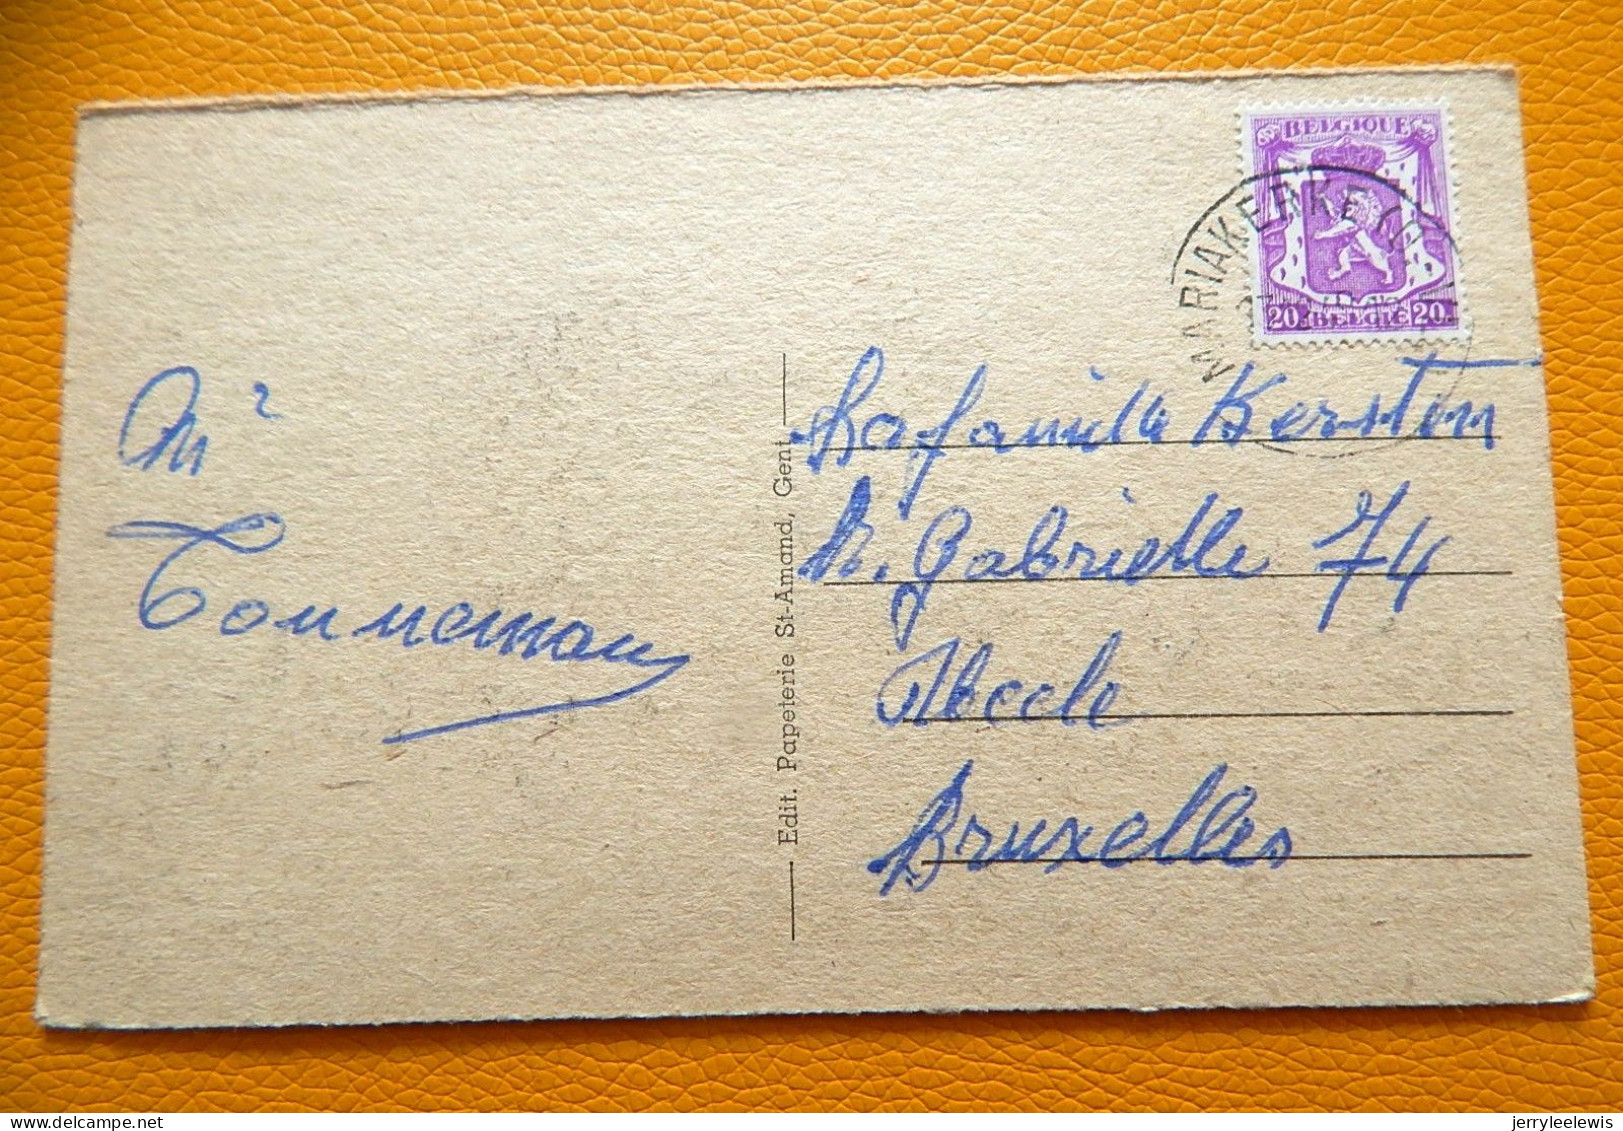 BELGIQUE
MARIAKERKE (O
20 BELGIE 20
Mr
Tonneman
Edit. Papeterie St-Amand, Gent
La famille Kersten
R. Gabrielle 74
Uccle
Bruxelles
delcampe.net
jerryleelewis